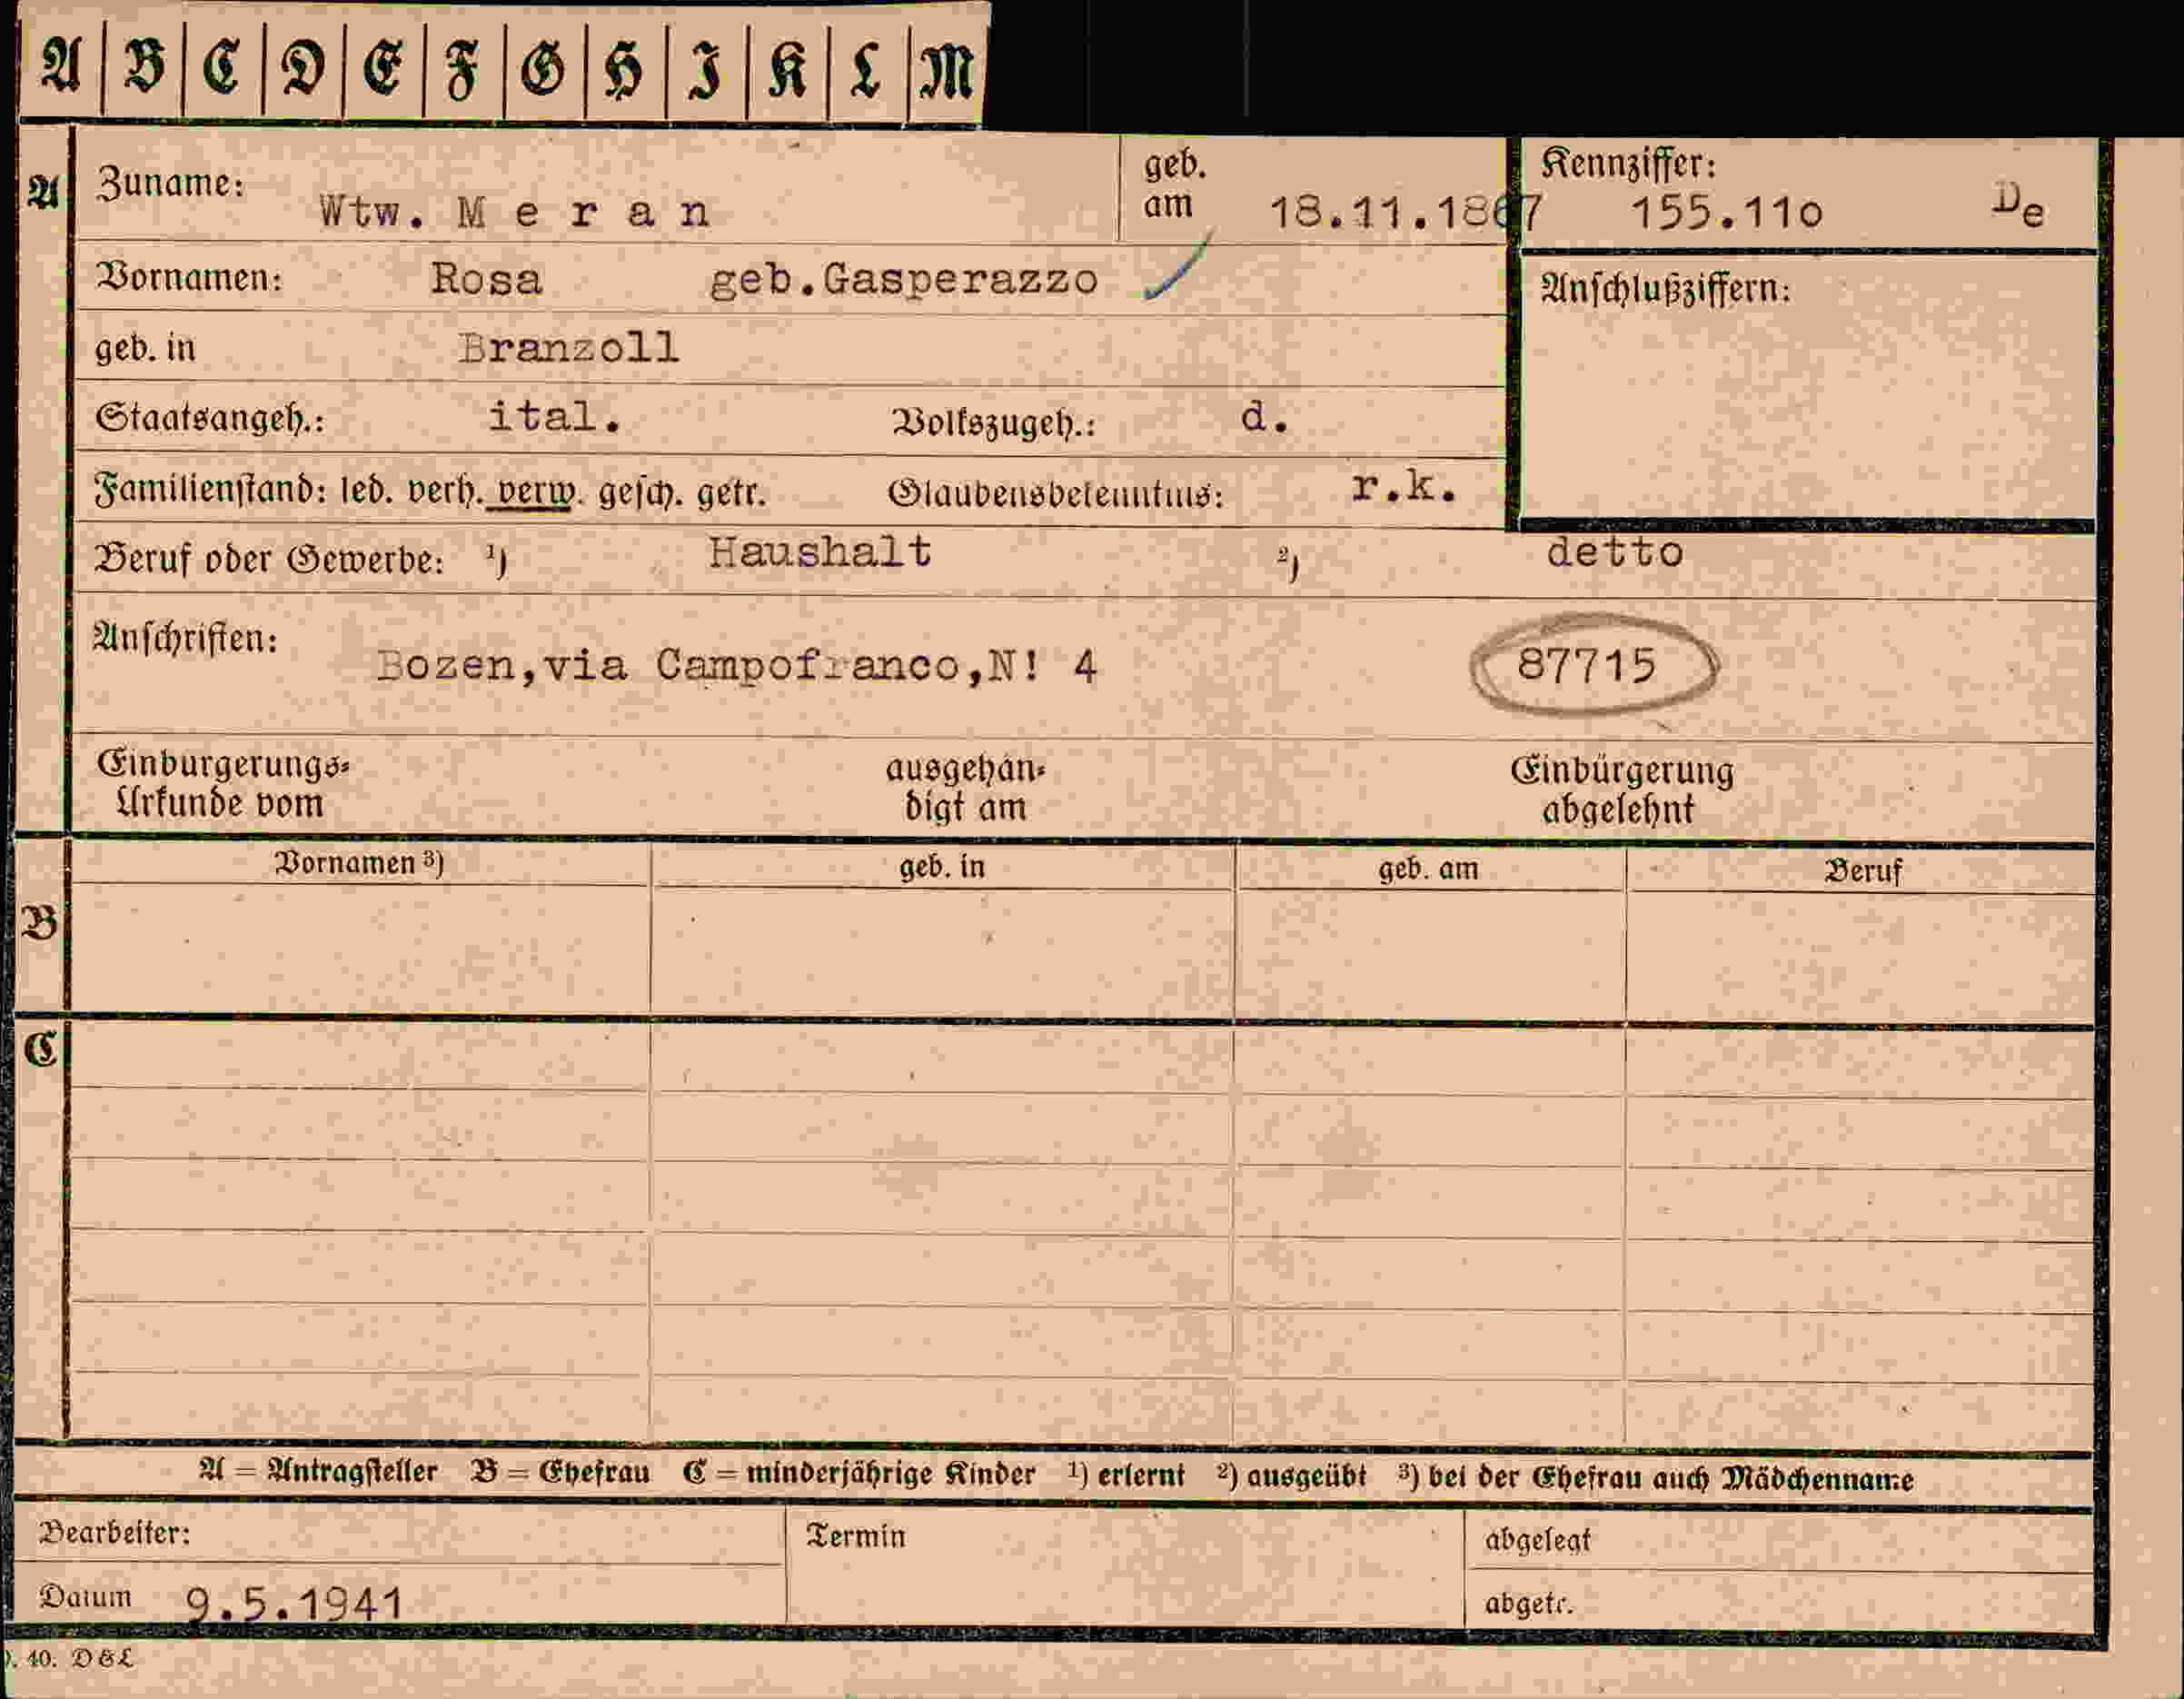 A B C D E F G H I K L M
A Zuname: Wtw. M e r a n geb. am 18.11.1867 Kennziffer: 155.110 De
Vornamen: Rosa geb.Gasperazzo
Anschlußziffern:
geb. in Branzoll
Staatsangeh.: ital. Volkszugeh.: d.
Familienstand: led. verh. verw. gesch. getr. Glaubensbekenntnis: r.k.
Beruf oder Gewerbe: ¹) Haushalt ²) detto
Anschriften: Bozen,via Campofranco,N! 4 87715
Einbürgerungs-
Urkunde vom
ausgehän-
digt am
Einbürgerung
abgelehnt
Vornamen ³) geb. in geb. am Beruf
B
C
A = Antragsteller B = Ehefrau C = minderjährige Kinder ¹) erlernt ²) ausgeübt ³) bei der Ehefrau auch Mädchenname
Bearbeiter: Termin abgelegt
Datum 9.5.1941 abgetr.
. 40. D&L